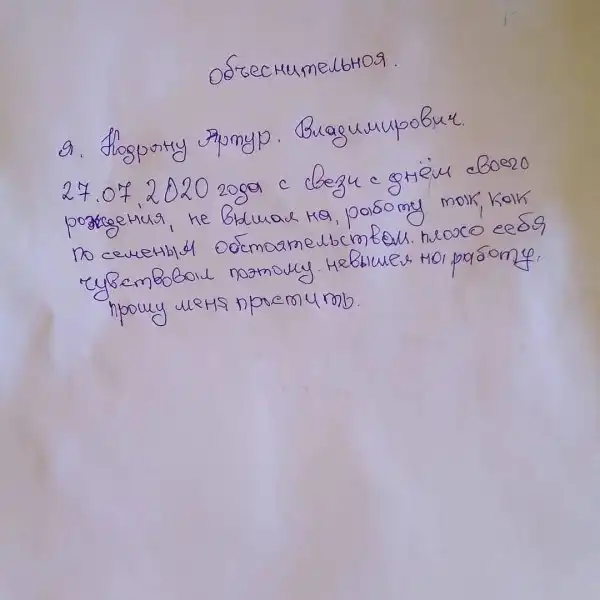 объеснительноя.
я. Нодрону Артур. Владимирович.
27.07.2020 года с свези с днём своего
рождения, не вышал на, работу так, как
по семеным обстоятельствам. плохо себя
чувствовал поэтому. невышел на работу.
прошу меня простить.